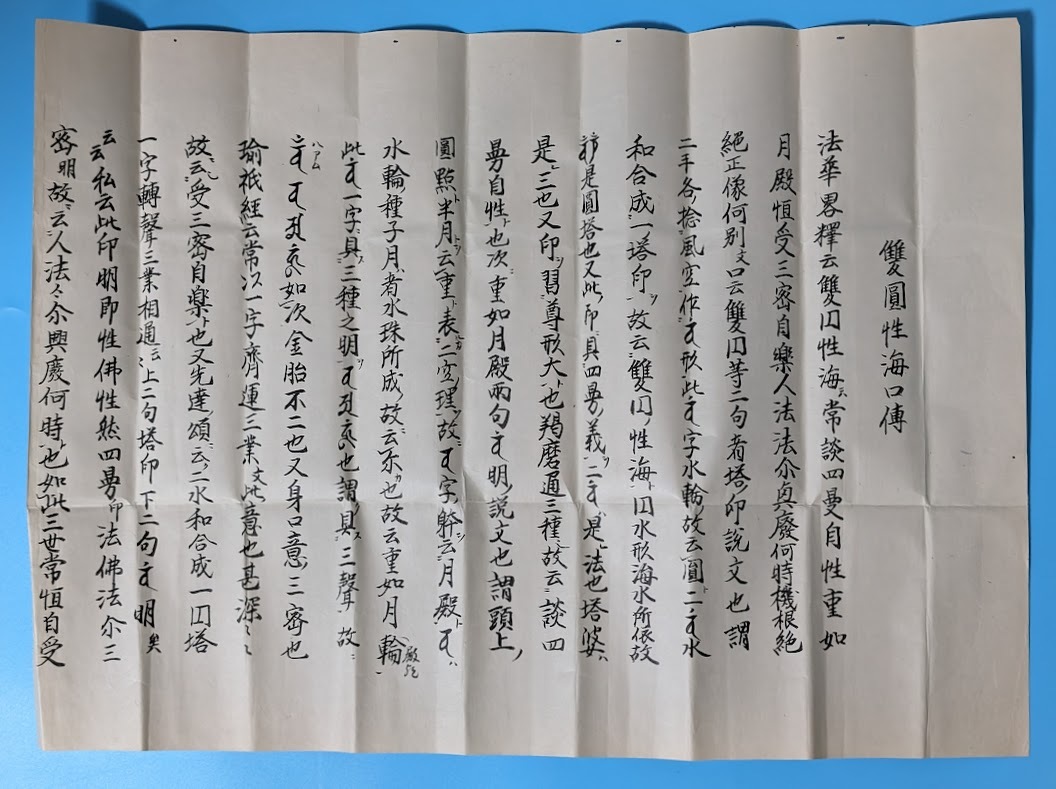 雙圓性海口傳
法華畧釋云雙囗性海云常談四曼自性重如
月殿恒受三密自樂人法法尒興廢何時機根絶
絶正像何別文口云雙囗等二句者塔印說文也謂
二手各捻風空作 形此 字水輪故云圓二 水
和合成一塔印故云雙囗性海囗水形海水所依故
是圓塔也又此印具四曼義二 是法也塔婆
是三也又印習尊形大也羯磨通三種故云談四
曼自性也次重如月殿兩句 明說文也謂頭上
圓點半月云重表二空理故 字躰云月殿
水輪種子月者水珠所成故云尓也故云重如月輪
此 一字具三種之明 也謂具三聲故
如次金胎不二也又身口意三密也
瑜祇經云常以一字齊運三業文此意也甚深々
故云受三密自樂也又先達頌云二水和合成一囗塔
一字轉聲三業相通云上二句塔印下二句 明矣
云云私云此印明即性佛性然四曼印法佛法尒三
密明故云人法々尒興廢何時也如此三世常恒自受